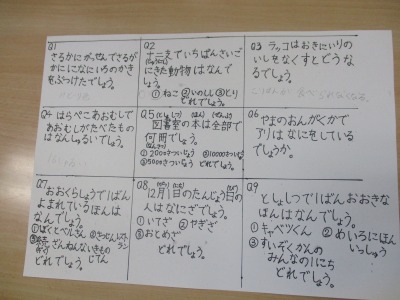 Q1
さるかにがっせんでさるが
かににになにいろのかき
をぶつけたでしょう。
Q2
十二支でいちばんさいご
にきた動物はなんで
しょう。
①ねこ ②いのしし ③とり
どれでしょう。
Q3 ラッコはおきにいりの
いしをなくすとどうな
るでしょう。
ごはんが食べられなくなる。
Q4 はらぺこあおむしで
あおむしがたべたもの
はなんしゅるいでしょう。
Q5 図書室の本は全部で
何冊でしょう。
①2000さついじょう ②10000さついじょう
③5000さついじょう どれでしょう。
Q6
やまのおんがくかで
アリはなにをしている
でしょうか。
Q7
おおくらしょうで1ばん
よまれているほんは
なんでしょう。
①ぼくとべんざん ②きょうしつレストラン
③ざんねんないきもの
じてん
どれでしょう。
Q8
12月1日のたんじょう日の
人はなにざでしょう。
①いてざ ②やぎざ
③おとめざ
どれでしょう。
Q9
としょしつで1ばんおおきな
ほんはなんでしょう。
①キャベツくん ②めいろにほん
いっしゅう
③すいぞくかんの
みんなの1にち
どれでしょう。